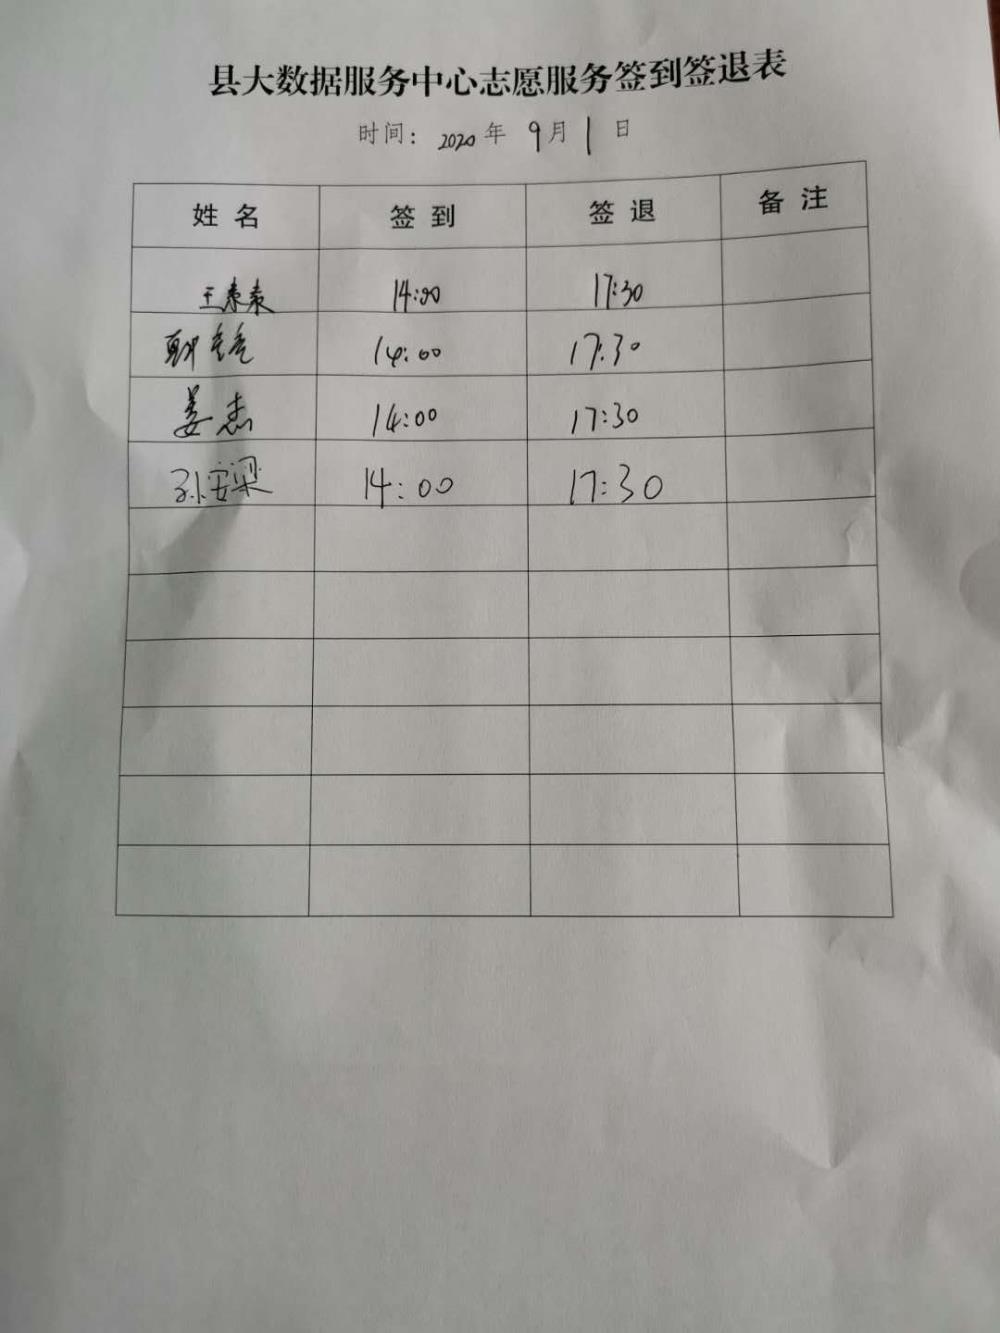 县大数据服务中心志愿服务签到签退表
时间: 2020 年 9 月 1 日
姓 名 签 到 签 退 备 注
王素素 14:00 17:30
14:00 17:30
姜杰 14:00 17:30
孙安梁 14:00 17:30